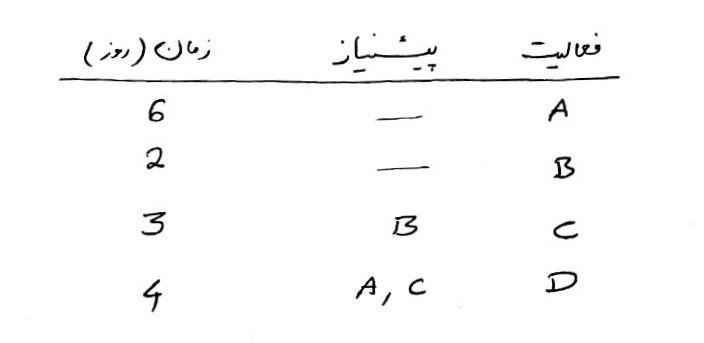 فعالیت پیشنیاز زمان (روز)
A — 6
B — 2
C B 3
D A, C 4